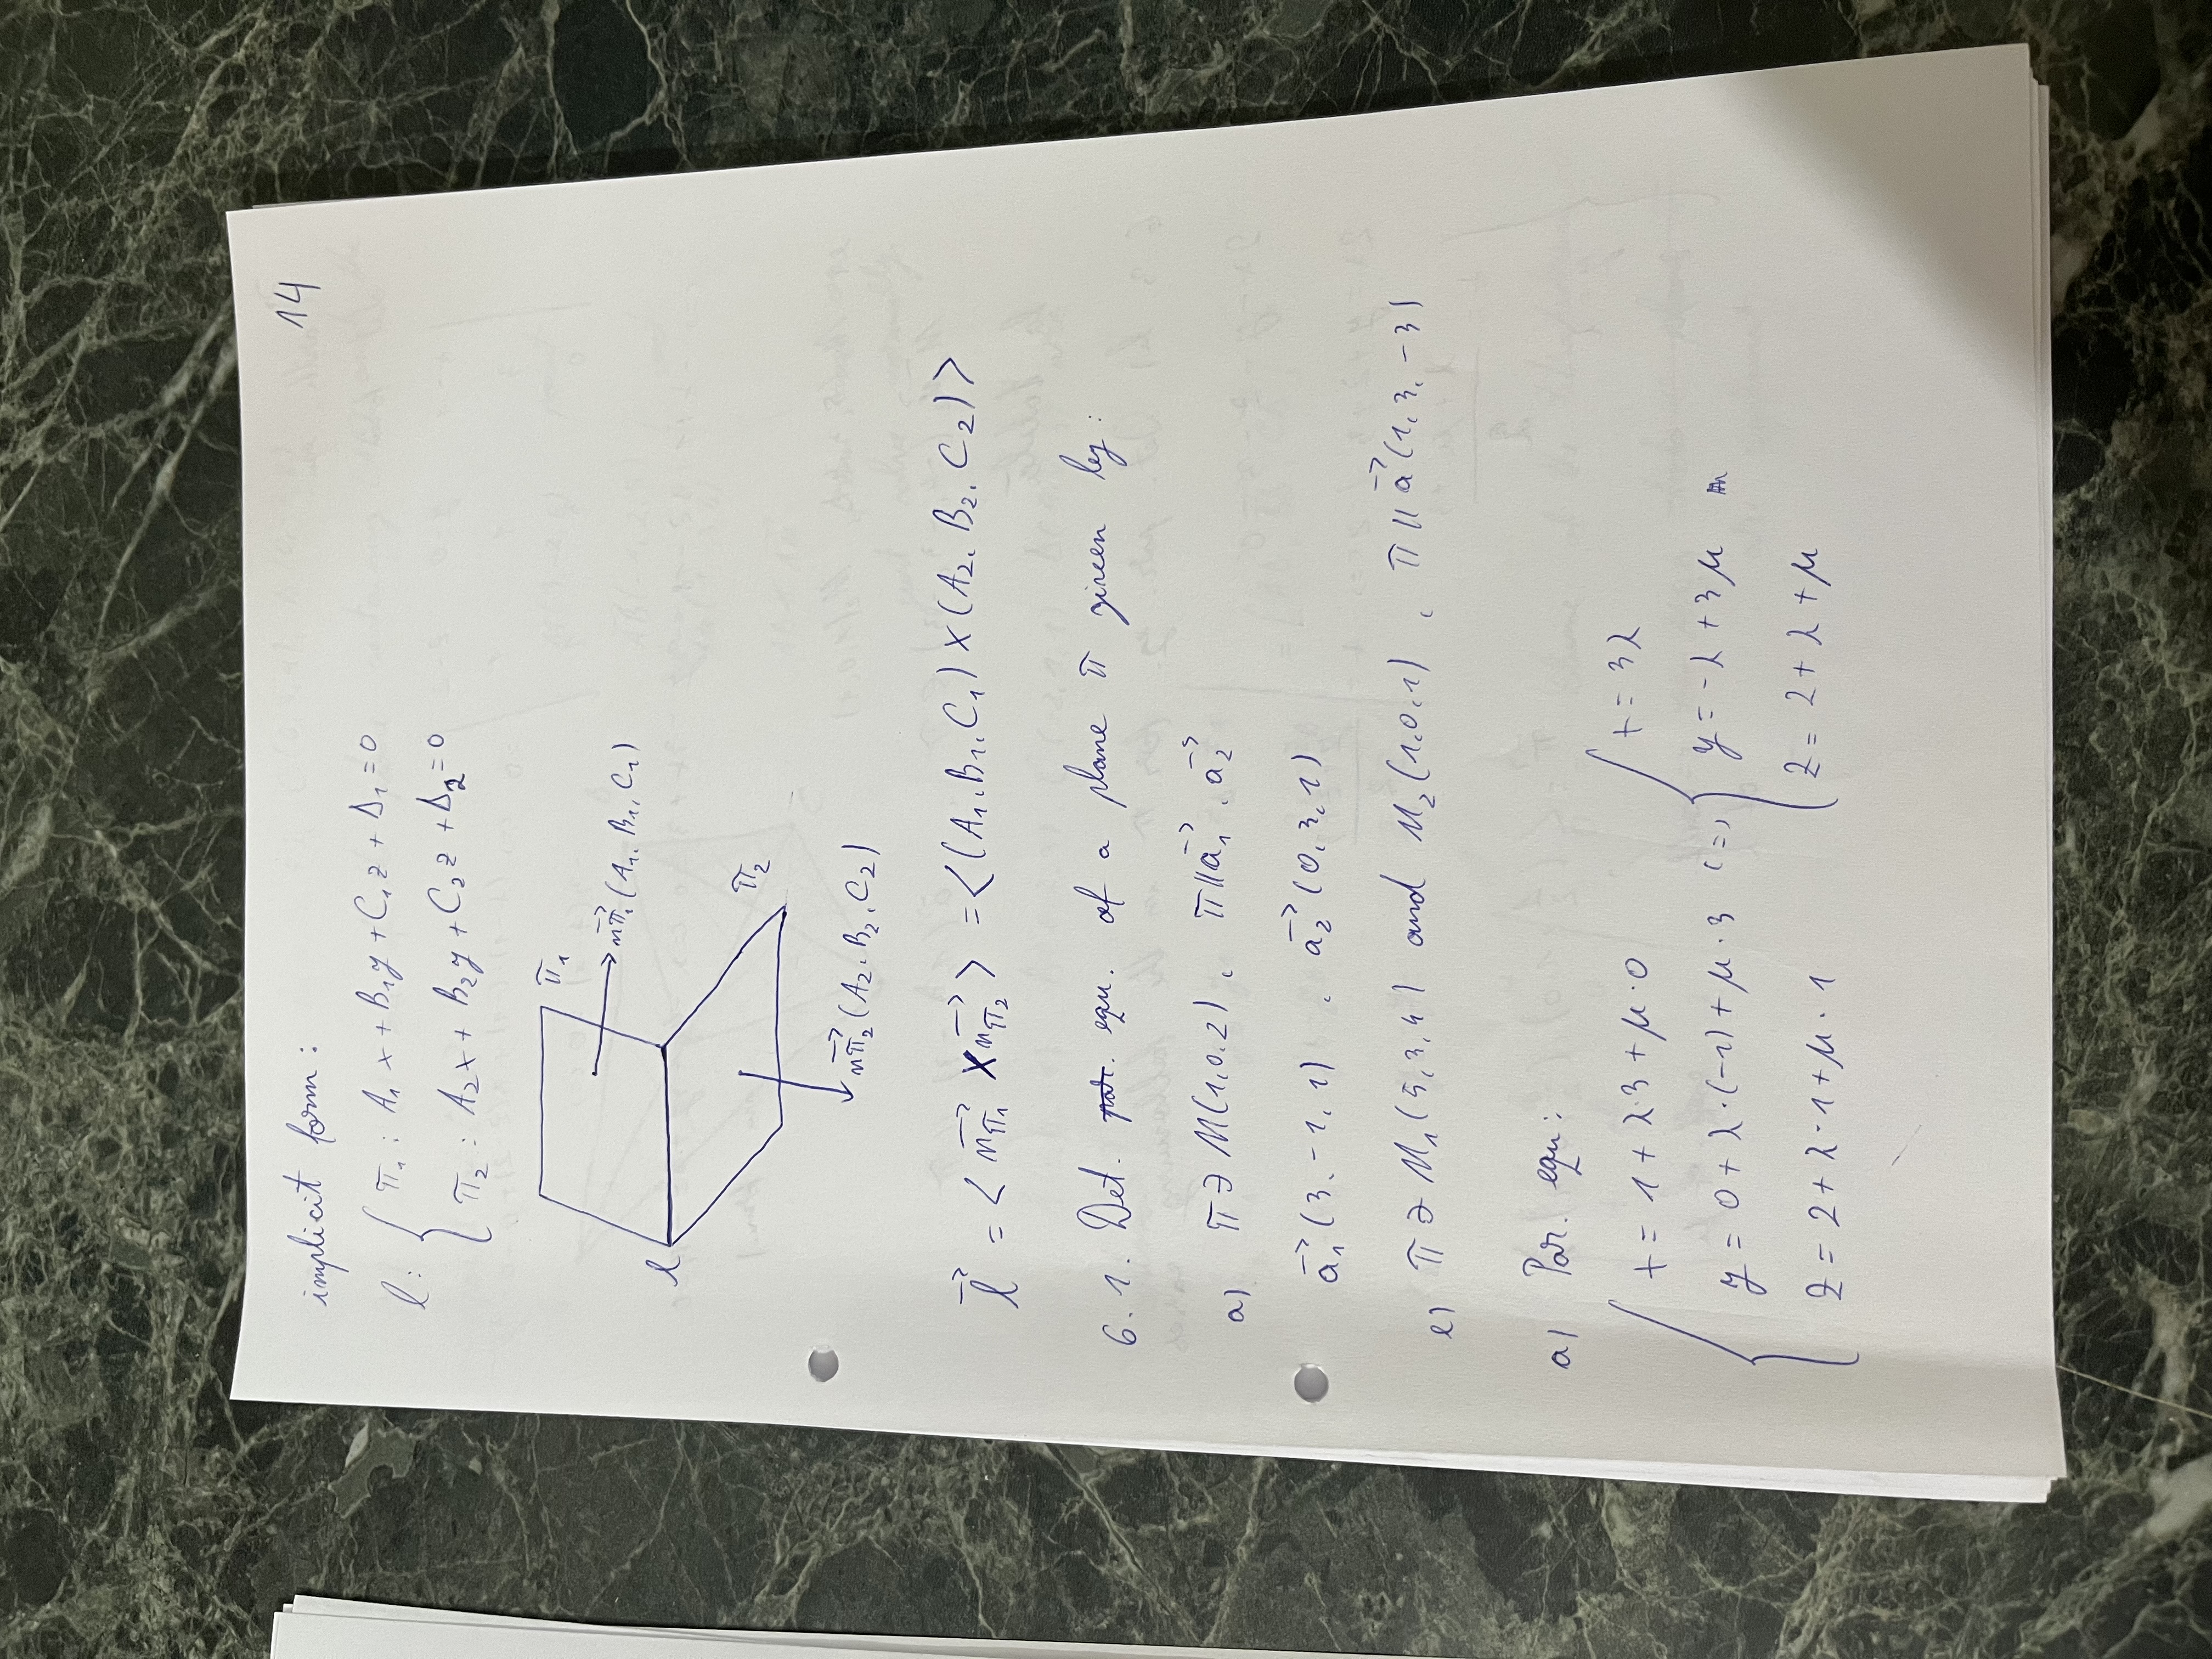 14
implicit form:
l: { π₁: A₁x + B₁y + C₁z + D₁ = 0
π₂: A₂x + B₂y + C₂z + D₂ = 0
π₁
n⃗π₁(A₁, B₁, C₁)
l
π₂
n⃗π₂(A₂, B₂, C₂)
l⃗ = <n⃗π₁ × n⃗π₂> = <(A₁, B₁, C₁) × (A₂, B₂, C₂)>
6.1. Det. par. equ. of a plane π given by:
a) π ∋ M(1,0,2), π ∥ a₁⃗, a₂⃗
a₁⃗(3,-1,1), a₂⃗(0,3,1)
e) π ∋ M₁(5,3,4) and M₂(1,0,1), π ∥ a⃗(1,3,-3)
a) Par. equ:
{ x = 1 + λ·3 + μ·0 { x = 3λ
y = 0 + λ·(-1) + μ·3 (=) y = -λ + 3μ
z = 2 + λ·1 + μ·1 z = 2 + λ + μ